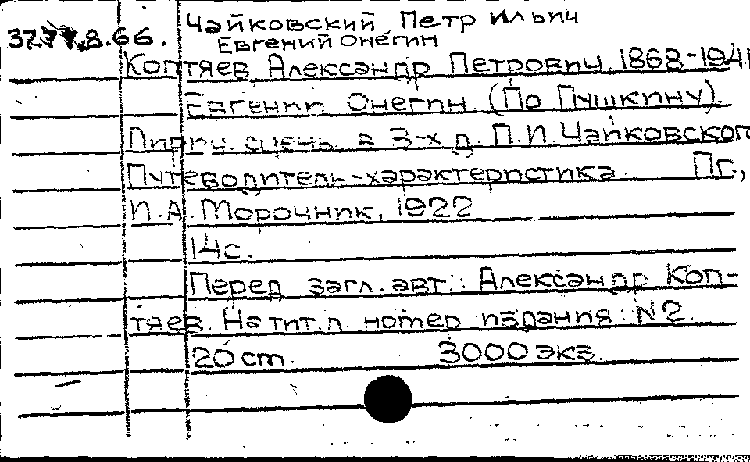 Чайковский Петр Ильич
37.77.8.66. Евгений Онегин
Коптяев, Александр Петрович, 1868-1941
Евгений Онегин (По Пушкину).
Лирич. сцены в 3-х д. П.И. Чайковского
Путеводитель-характеристика. Пг.,
И.А. Морочник, 1922
14с.
Перед загл. авт.: Александр Коп-
тяев. На тит. л. номер издания: N2.
20 cm. 3000 экз.